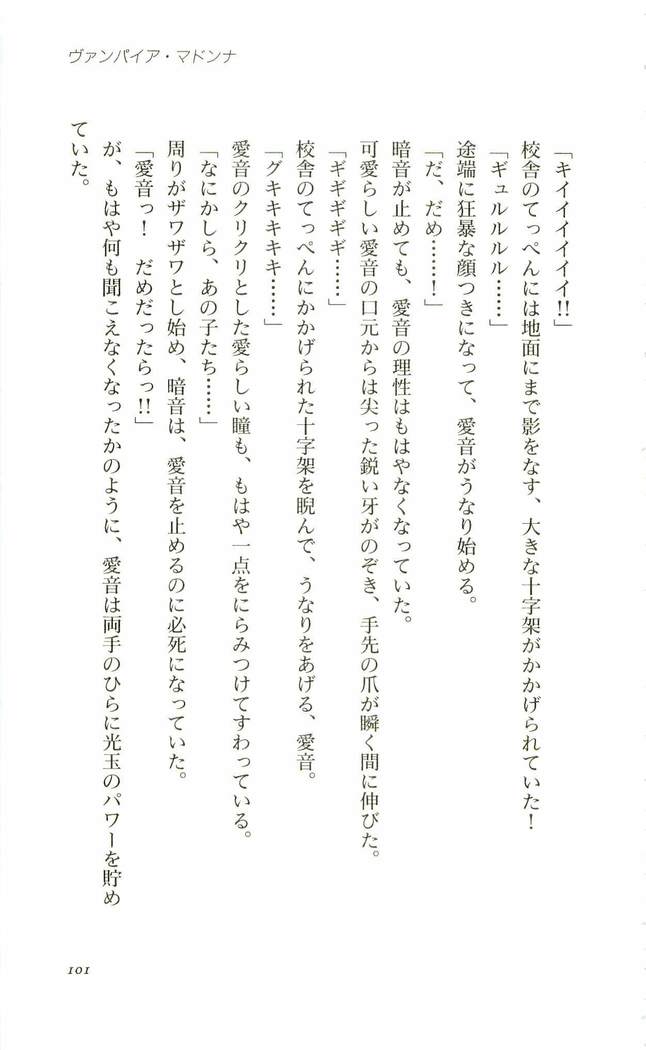 ヴァンパイア・マドンナ
「キイイイイイイ!!」
校舎のてっぺんには地面にまで影をなす、大きな十字架がかかげられていた！
「ギュルルルル……」
途端に狂暴な顔つきになって、愛音がうなり始める。
「だ、だめ……！」
暗音が止めても、愛音の理性はもはやなくなっていた。
可愛らしい愛音の口元からは尖った鋭い牙がのぞき、手先の爪が瞬く間に伸びた。
「ギギギギギ……」
校舎のてっぺんにかかげられた十字架を睨んで、うなりをあげる、愛音。
「グキキキキキ……」
愛音のクリクリとした愛らしい瞳も、もはや一点をにらみつけてすわっている。
「なにかしら、あの子たち……」
周りがザワザワとし始め、暗音は、愛音を止めるのに必死になっていた。
「愛音っ！　だめだったらっ!!」
が、もはや何も聞こえなくなったかのように、愛音は両手のひらに光玉のパワーを貯め
ていた。
101